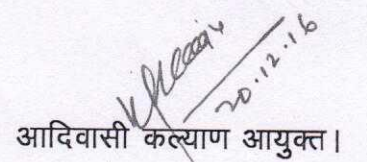 20.12.16
आदिवासी कल्याण आयुक्त।